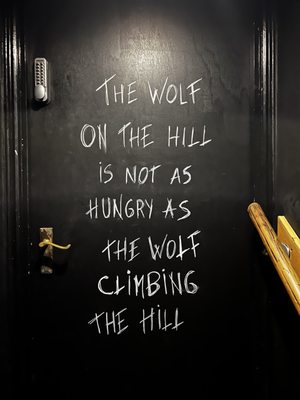 THE WOLF
ON THE HILL
IS NOT AS
HUNGRY AS
THE WOLF
CLIMBING
THE HILL